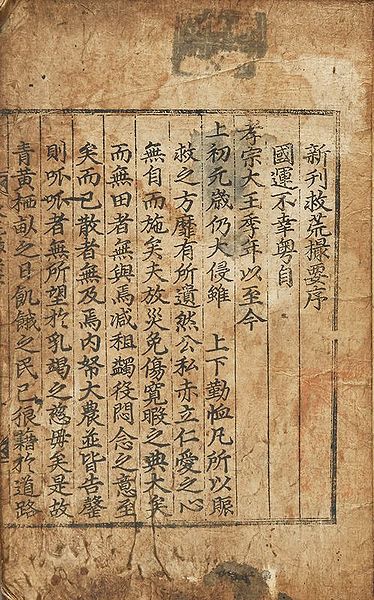 新刊救荒撮要序
國運不幸粤自
孝宗大王季年以至今
上初元歳仍大侵雖　上下勤恤凡所以賑
救之方靡有所遺然公私赤立仁愛之心
無自而施矣夫放災免傷寛暇之典大矣
而無田者無與焉减租蠲役悶念之意至
矣而已散者無及焉内帑大農並皆告罄
則呱呱者無所望於乳竭之慈毋矣是故
青黄栖畒之日飢餓之民已狼藉於道路